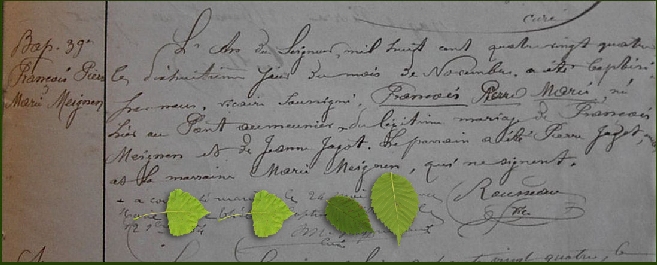 Curé
Bap. 39e
François Pierre
Marie Meignen
L'An du Seigneur, mil huit cent quatre vingt quatre
le dixhuitième jour du mois de Novembre, a été baptisé
par nous, vicaire soussigné, François Pierre Marie, né
hier au Pont aumeunier du légitime mariage de François
Meignen et de Jeanne Jagot. Le parrain a été Pierre Jagot,
et la marraine Marie Meignen, qui ne signent.
Rousseau
Vic.
a
quatre, le